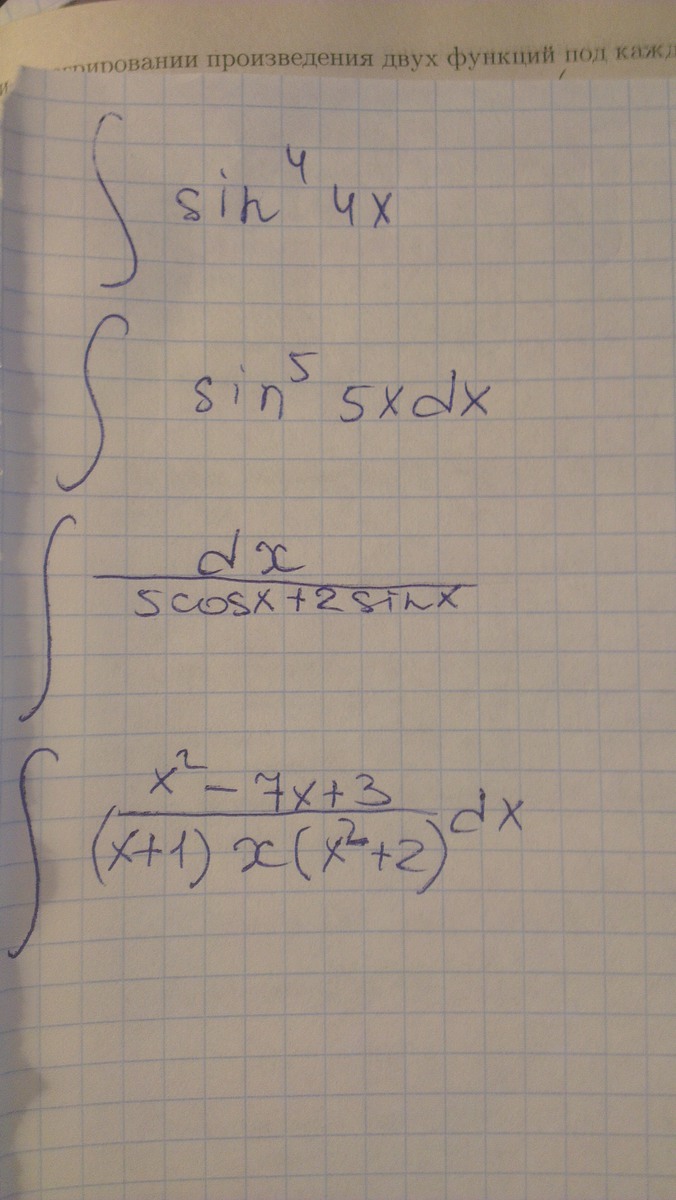 произведения двух функций под
∫ sin⁴ 4x
∫ sin⁵ 5xdx
∫ dx / (5cosx+2sinx)
∫ (x² - 7x+3) / ((x+1) x(x²+2)) dx